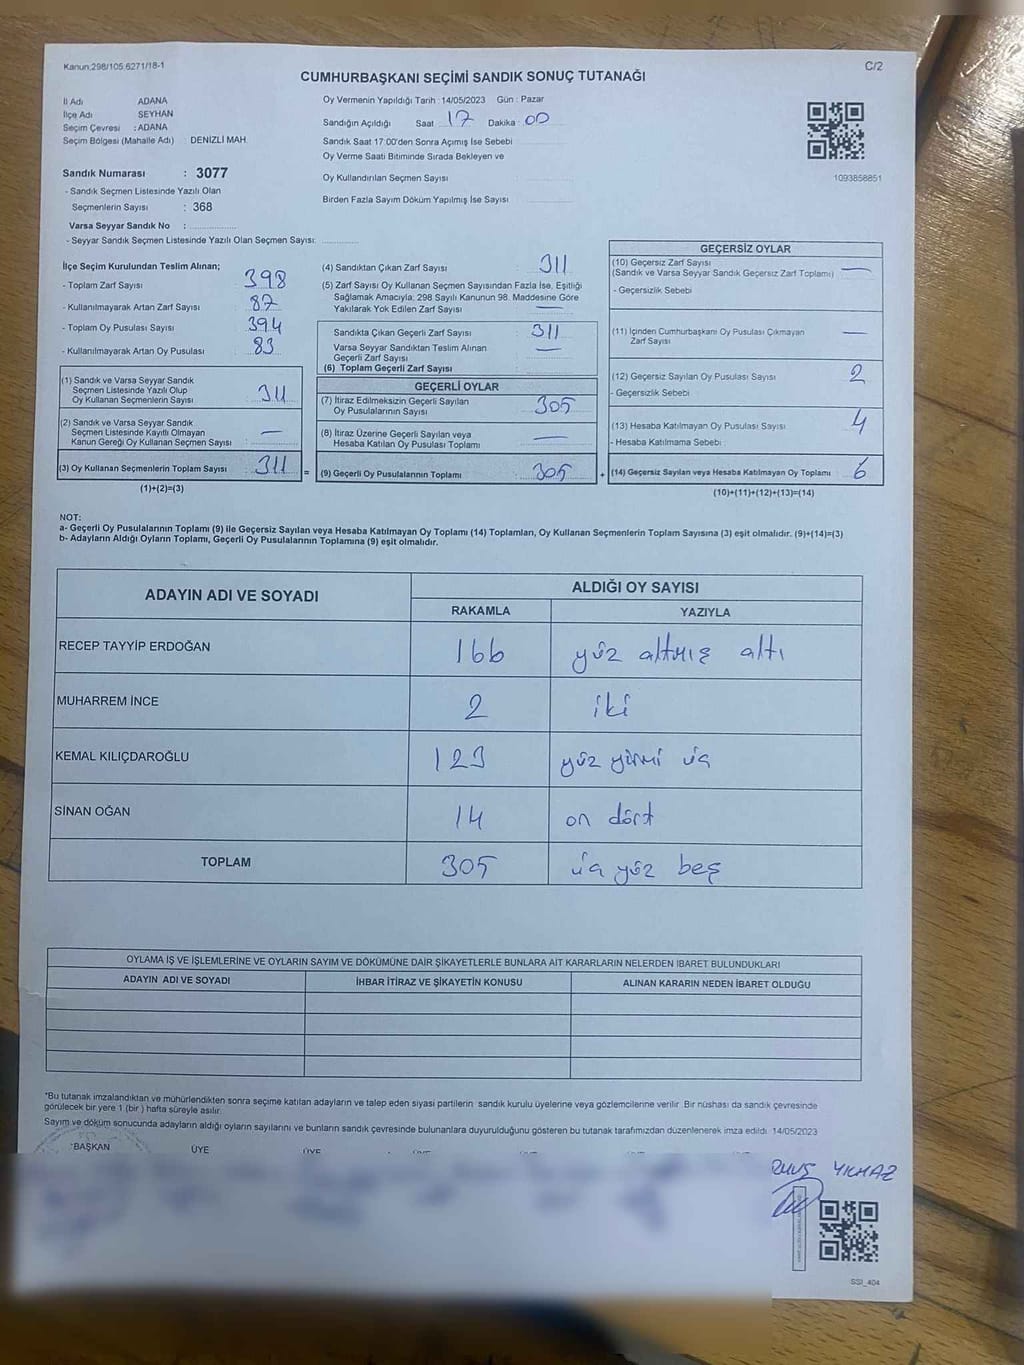 Kanun:298/105.6271/18-1
C/2
CUMHURBAŞKANI SEÇİMİ SANDIK SONUÇ TUTANAĞI
İl Adı ADANA
İlçe Adı SEYHAN
Seçim Çevresi : ADANA
Seçim Bölgesi (Mahalle Adı) DENİZLİ MAH.
Oy Vermenin Yapıldığı Tarih : 14/05/2023 Gün : Pazar
Sandığın Açıldığı Saat 17 Dakika 00
Sandık Saat 17:00'den Sonra Açımış İse Sebebi
Oy Verme Saati Bitiminde Sırada Bekleyen ve
Oy Kullandırılan Seçmen Sayısı
Birden Fazla Sayım Döküm Yapılmış İse Sayısı
1093858851
Sandık Numarası : 3077
- Sandık Seçmen Listesinde Yazılı Olan
Seçmenlerin Sayısı : 368
Varsa Seyyar Sandık No :
- Seyyar Sandık Seçmen Listesinde Yazılı Olan Seçmen Sayısı:
İlçe Seçim Kurulundan Teslim Alınan;
- Toplam Zarf Sayısı : 398
- Kullanılmayarak Artan Zarf Sayısı : 87
- Toplam Oy Pusulası Sayısı : 394
- Kullanılmayarak Artan Oy Pusulası : 83
(1) Sandık ve Varsa Seyyar Sandık
Seçmen Listesinde Yazılı Olup
Oy Kullanan Seçmenlerin Sayısı : 311
(2) Sandık ve Varsa Seyyar Sandık
Seçmen Listesinde Kayıtlı Olmayan
Kanun Gereği Oy Kullanan Seçmen Sayısı : —
(3) Oy Kullanan Seçmenlerin Toplam Sayısı : 311
(1)+(2)=(3)
(4) Sandıktan Çıkan Zarf Sayısı : 311
(5) Zarf Sayısı Oy Kullanan Seçmen Sayısından Fazla İse, Eşitliği
Sağlamak Amacıyla; 298 Sayılı Kanunun 98. Maddesine Göre
Yakılarak Yok Edilen Zarf Sayısı : —
Sandıkta Çıkan Geçerli Zarf Sayısı : 311
Varsa Seyyar Sandıktan Teslim Alınan
Geçerli Zarf Sayısı : —
(6) Toplam Geçerli Zarf Sayısı :
GEÇERLİ OYLAR
(7) İtiraz Edilmeksizin Geçerli Sayılan
Oy Pusulalarının Sayısı : 305
(8) İtiraz Üzerine Geçerli Sayılan veya
Hesaba Katılan Oy Pusulası Toplamı : —
= (9) Geçerli Oy Pusulalarının Toplamı : 305
GEÇERSİZ OYLAR
(10) Geçersiz Zarf Sayısı
(Sandık ve Varsa Seyyar Sandık Geçersiz Zarf Toplamı) : —
- Geçersizlik Sebebi
(11) İçinden Cumhurbaşkanı Oy Pusulası Çıkmayan
Zarf Sayısı —
(12) Geçersiz Sayılan Oy Pusulası Sayısı : 2
- Geçersizlik Sebebi :
(13) Hesaba Katılmayan Oy Pusulası Sayısı : 4
- Hesaba Katılmama Sebebi :
+ (14) Geçersiz Sayılan veya Hesaba Katılmayan Oy Toplamı : 6
(10)+(11)+(12)+(13)=(14)
NOT:
a- Geçerli Oy Pusulalarının Toplamı (9) ile Geçersiz Sayılan veya Hesaba Katılmayan Oy Toplamı (14) Toplamları, Oy Kullanan Seçmenlerin Toplam Sayısına (3) eşit olmalıdır. (9)+(14)=(3)
b- Adayların Aldığı Oyların Toplamı, Geçerli Oy Pusulalarının Toplamına (9) eşit olmalıdır.
ADAYIN ADI VE SOYADI
ALDIĞI OY SAYISI
RAKAMLA YAZIYLA
RECEP TAYYİP ERDOĞAN 166 yüz altmış altı
MUHARREM İNCE 2 iki
KEMAL KILIÇDAROĞLU 123 yüz yirmi üç
SİNAN OĞAN 14 on dört
TOPLAM 305 üç yüz beş
OYLAMA İŞ VE İŞLEMLERİNE VE OYLARIN SAYIM VE DÖKÜMÜNE DAİR ŞİKAYETLERLE BUNLARA AİT KARARLARIN NELERDEN İBARET BULUNDUKLARI
ADAYIN ADI VE SOYADI İHBAR İTİRAZ VE ŞİKAYETİN KONUSU ALINAN KARARIN NEDEN İBARET OLDUĞU
*Bu tutanak imzalandıktan ve mühürlendikten sonra seçime katılan adayların ve talep eden siyasi partilerin sandık kurulu üyelerine veya gözlemcilerine verilir. Bir nüshası da sandık çevresinde
görülecek bir yere 1 (bir ) hafta süreyle asılır.
Sayım ve döküm sonucunda adayların aldığı oyların sayılarını ve bunların sandık çevresinde bulunanlara duyurulduğunu gösteren bu tutanak tarafımızdan düzenlenerek imza edildi. 14/05/2023
BAŞKAN ÜYE
YILMAZ
SSI_404